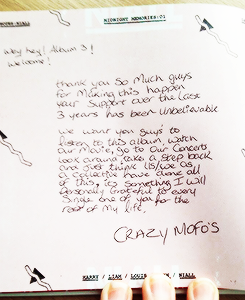 MIDNIGHT MEMORIES/01
Wey hey! Album 3!
Welcome!
Thank you So Much guys
for Making this happen
your Support over the last
3 years has been Unbelievable
we want you guys to
listen to this album, watch
Our Movie, go to Our Concerts
look around, take a step back
and just think US/we as
a collective have done all
of this, its something I will
Personally Grateful to every
Single one of you for the
rest of My life.
CRAZY MOFO'S
HARRY / LIAM / LOUIS / NIALL